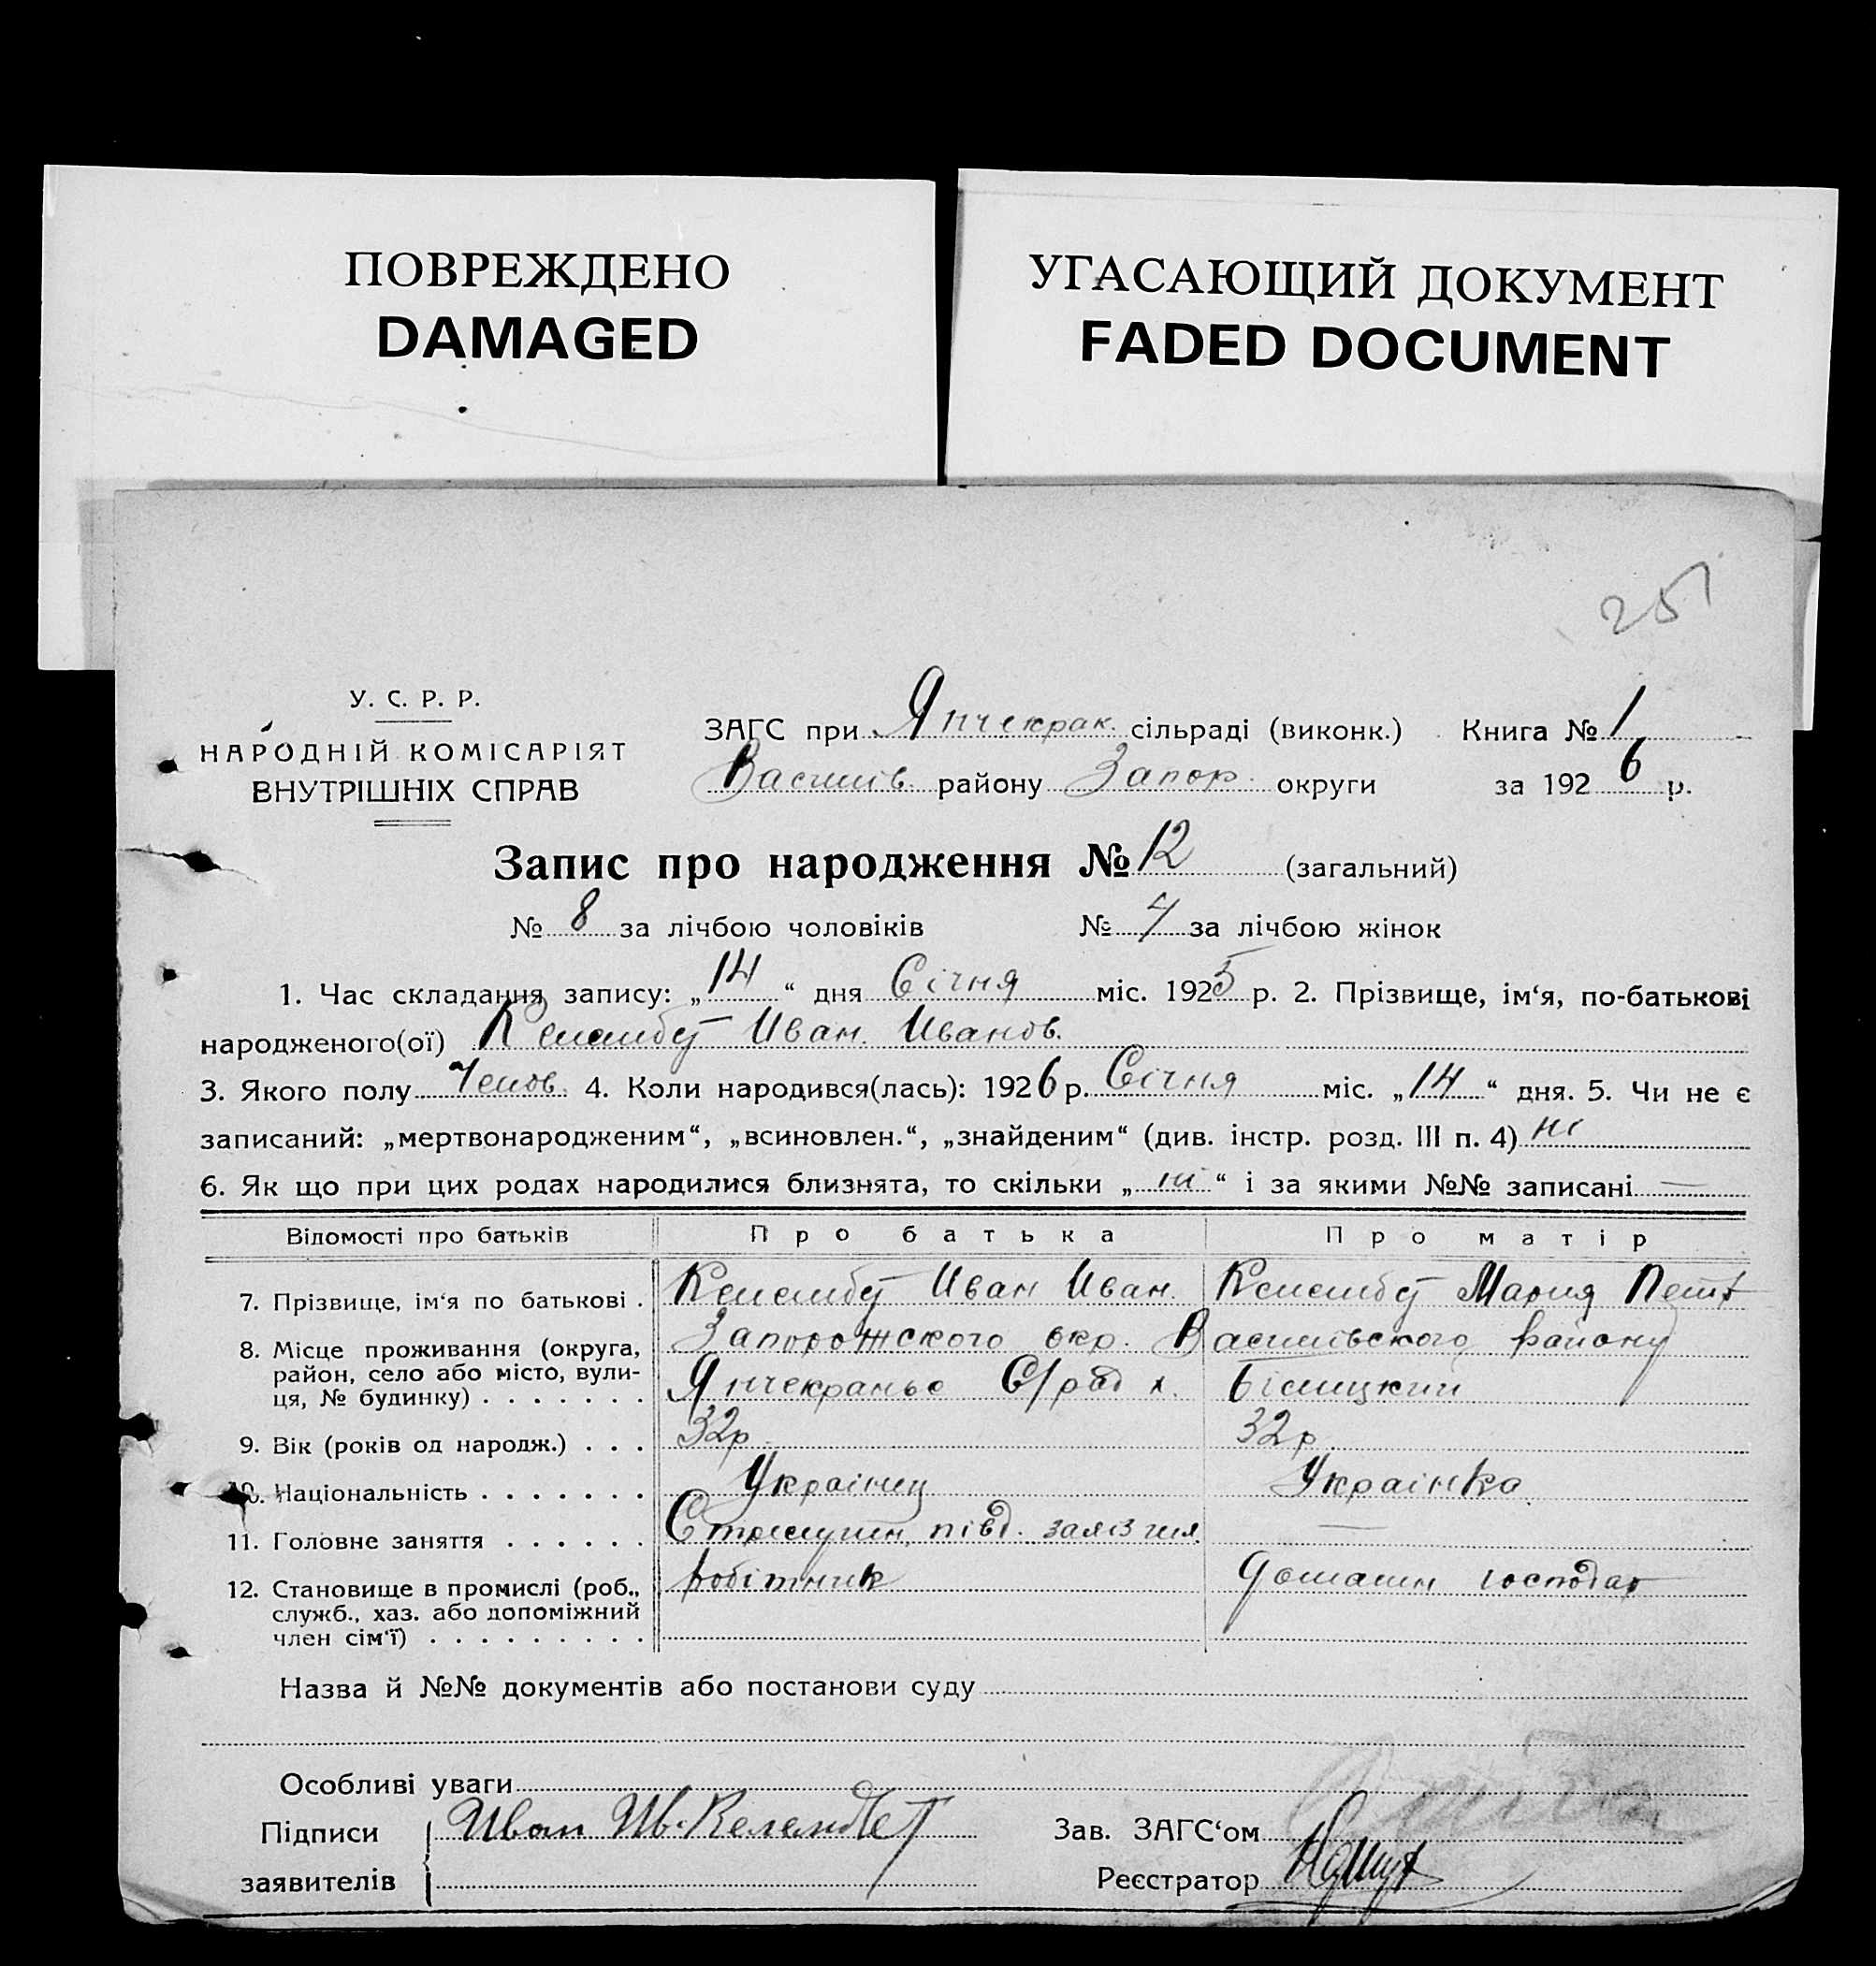 ПОВРЕЖДЕНО
DAMAGED
УГАСАЮЩИЙ ДОКУМЕНТ
FADED DOCUMENT
251
У. С. Р. Р.
НАРОДНІЙ КОМІСАРІЯТ
ВНУТРІШНІХ СПРАВ
ЗАГС при Янчекрак. сільраді (виконк.) Книга № 1
Василів. району Запор. округи за 1926 р.
Запис про народження № 12 (загальний)
№ 8 за лічбою чоловіків № 4 за лічбою жінок
1. Час складання запису: „14“ дня Січня міс. 1925 р. 2. Прізвище, ім‘я, по-батькові
народженого(ої) Келембет Иван. Иванов.
3. Якого полу Чолов. 4. Коли народився(лась): 1926 р. Січня міс. „14“ дня. 5. Чи не є
записаний: „мертвонародженим“, „всиновлен.“, „знайденим“ (див. інстр. розд. III п. 4) ні
6. Як що при цих родах народилися близнята, то скільки „ні“ і за якими №№ записані —
Відомості про батьків Про батька Про матір
7. Прізвище, ім‘я по батькові . Келембет Иван Иван. Келембет Мария
8. Місце проживання (округа, район, село або місто, вулиця, № будинку) . . . . . . . Запорожского окр. Василівского району
Янчекраньс С/рад х.
9. Вік (років од народж.) . . . 32р. 32р.
10. Національність . . . . . . . Українец Українка.
11. Головне заняття . . . . . . півд. залізниц. —
12. Становище в промислі (роб., служб., хаз. або допоміжний член сім‘ї) . . . . . . . . . робітник Домашн господар
Назва й №№ документів або постанови суду
Особливі уваги
Підписи заявителів Иван Ив. Келембет
Зав. ЗАГС‘ом
Реєстратор